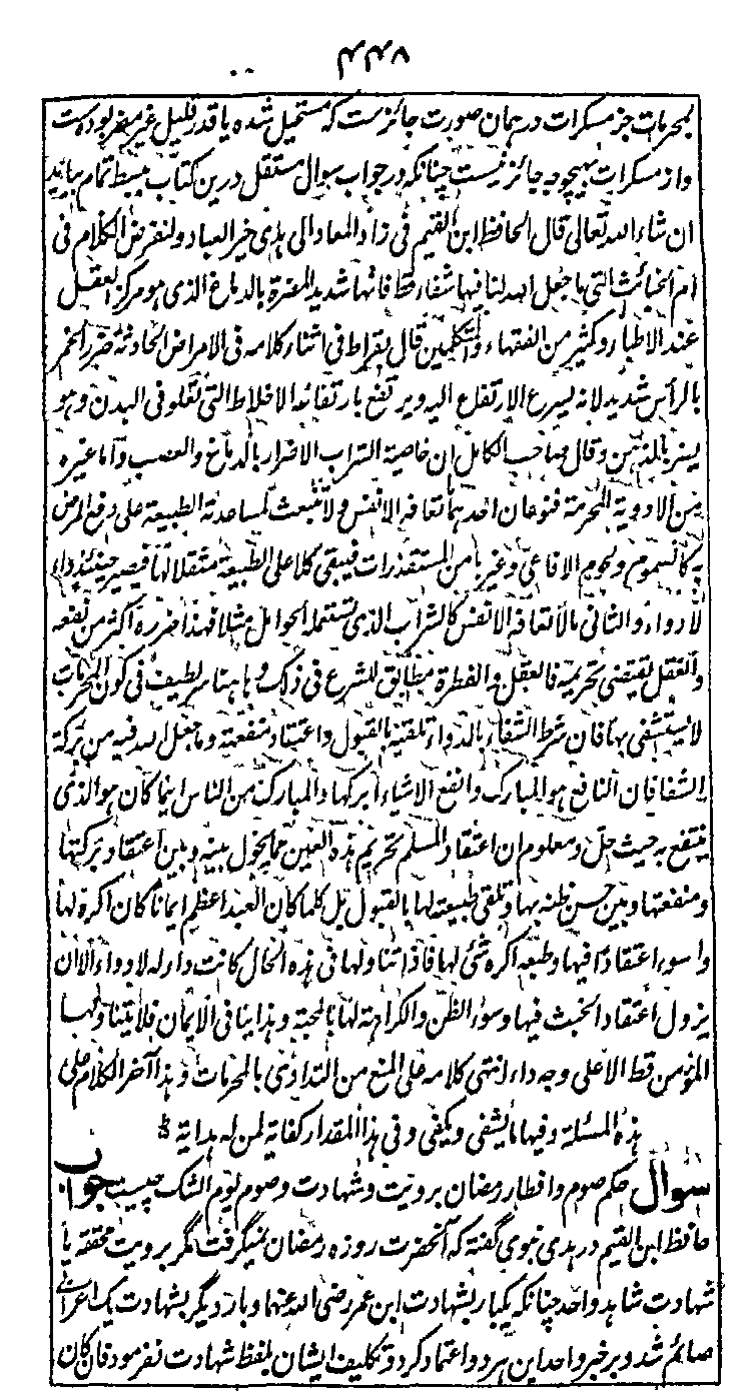 ۴۴۷
بمحرمات جز مسکرات در همان صورت جائزست که مستحیل شده یا قدر قلیل غیر مضر بوده ست
و از مسکرات بهیچوجه جائز نیست چنانکه در جواب سوال مستقل درین کتاب ببسط تمام بیاید
ان شاء الله تعالی قال الحافظ ابن القیم فی زاد المعاد الی هدی خیر العباد ولنفرض الکلام فی
ام الخبائث التی ما جعل الله لنا فیها شفاء قط فانها شدید المضرة بالدماغ الذی هو مرکز العقل
عند الاطباء وکثیر من الفقهاء والمتکلمین قال بقراط فی اثناء کلامه فی الامراض الحادثة ضرر الخمر
بالرأس شدید لانه یسرع الارتفاع الیه ویرتفع بارتفاعه الاخلاط التی تعلو فی البدن وهو
یضر بالذهن وقال صاحب الکامل ان خاصیة الشراب الاضرار بالدماغ والعصب واما غیره
من الادویة المحرمة فنوعان احدهما تعافه الانفس ولا تنبعث لمساعدته الطبیعة علی دفع المرض
به کالسموم ولحوم الافاعی وغیرها من المستقذرات فیبقی کلا علی الطبیعة مثقلا لها فیصیر حینئذ داء
لا دواء والثانی ما لا تعافه الانفس کالشراب الذی تستعمله الحوامل مثلا فهذا ضرره اکثر من نفعه
والعقل یقتضی بتحریمه فالعقل والفطرة مطابق للشرع فی ذلک وهاهنا سر لطیف فی کون المحرمات
لا یستشفی بها فان شرط الشفاء بالدواء تلقیه بالقبول واعتقاد منفعته وما جعل الله فیه من برکة
الشفا فان النافع هو المبارک وانفع الاشیاء ابرکها والمبارک من الناس اینما کان هو الذی
ینتفع به حیث حل ومعلوم ان اعتقاد المسلم تحریم هذه العین مما یحول بینه وبین اعتقاد برکتها
ومنفعتها وبین حسن ظنه بها وتلقی طبیعته لها بالقبول بل کلما کان العبد اعظم ایمانا کان اکره لها
واسوء اعتقادا فیها وطبعه اکره شئ لها فاذا تناولها فی هذه الحال کانت داء له لا دواء الا ان
یزول اعتقاد الخبث فیها وسوء الظن والکراهة لها بالمحبة وهذا ینافی الایمان فلا یتناولها
المؤمن قط الا علی وجه داء انتهی کلامه علی المنع من التداوی بالمحرمات وهذا آخر الکلام علی
هذه المسئلة وفیها ما یشفی ویکفی وفی هذا المقدار کفایة لمن له هدایة
سوال حکم صوم و افطار رمضان برویت و شهادت و صوم یوم الشک چیست جواب
حافظ ابن القیم در هدی نبوی گفته که آنحضرت روزه رمضان نمیگرفت مگر برویت محققه یا
شهادت شاهد واحد چنانکه یکبار بشهادت ابن عمر رضی الله عنهما و بار دیگر بشهادت یک اعرابی
صائم شد و بر خبر واحد این هر دو اعتماد کرد و تکلیف ایشان بلفظ شهادت نفرمود فان کان